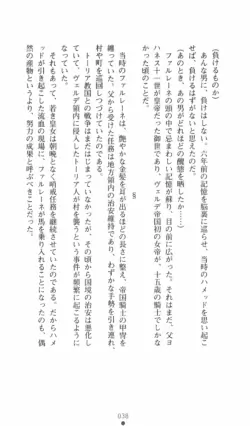 (負けるものか)
あんな男に、負けはしない。六年前の記憶を脳裏に巡らせ、当時のハメッドを思い起こ
せば、負けるはずがないと思えたのだ。
(あのとき、あの男がどれほどの醜態を晒したか――)
ファルレーネの頭の中で、忌まわしい記憶が蘇り、目の前に広がった。それはまだ、父ヨ
ハネス十一世が皇帝だった御世であり、ヴェルデ帝国初の女帝が、十五歳の騎士でしかな
かった頃のことだ。
§
当時のファルレーネは、艶やかな金髪が目が出るほどの長さに整え、帝国騎士の甲冑を
身につけていた。父から受けた任務は地方領内の治安維持であり、わずかな手勢を引き連れ、
村や町を巡回しつづけていたのである。
トーリア教国との戦争はまだはじまっていなかったが、その頃から国境の治安は悪化し
ており、ヴェルデ領内に侵入したトーリア人が村を襲うという事件が頻繁に起こるように
なっていた。
それもあって、若き皇女は朝晩となく哨戒任務を継続させていたのである。だからハメ
ッドが引き起こした流血の現場に、ファルレーネが馬を乗り入れることになったのも、偶
然の産物というよりは、努力の成果と呼ぶべきことだった。
038